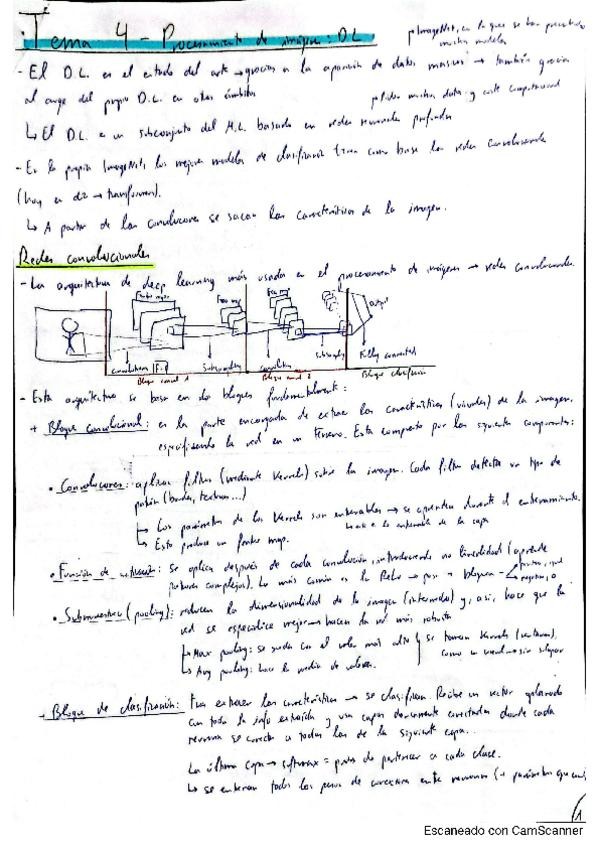 Tema 4 - Procesamiento de imágenes: D.L.
ImageNet, en la que se han presentado muchos modelos
- El D.L. es el estado del arte → gracias a la aparición de datos masivos → también gracias
al auge del propio D.L. en otros ámbitos
muchos datos y coste computacional
↳ El D.L. es un subconjunto del M.L. basado en redes neuronales profundas
- En la propia ImageNet, los mejores modelos de clasificación tienen como base las redes convolucionales
(hoy en día → transformers).
↳ A partir de las convoluciones se sacan las características de la imagen.
Redes convolucionales
- La arquitectura de deep learning más usada en el procesamiento de imágenes → redes convolucionales.
Feature maps
output
convolution
Subsampling
convolution
Subsampling
Fully connected
Bloque convol 1
Bloque convol 2
Bloque clasificación
- Esta arquitectura se basa en dos bloques fundamentalmente:
+ Bloque convolucional: es la parte encargada de extraer las características (visuales) de la imagen,
especificando la red en un . Esta compuesto por los siguientes componentes:
• Convoluciones: aplican filtros (mediante kernels) sobre la imagen. Cada filtro detecta un tipo de
patrón (bordes, texturas...)
↳ Los parámetros de los kernels son entrenables → se aprenden durante el entrenamiento.
↳ Esto produce un feature map.
• Función de activación: se aplica después de cada convolución, introduciendo no linealidad (aprende
patrones complejos). La más común es la Relu →
• Submuestreo (pooling): reducen la dimensionalidad de la imagen (intermedia) y, así, hace que la
red se especialice mejor → hacen la red más robusta
↳ Max pooling: se queda con el valor más alto
↳ Avg pooling: hace la media de valores.
se toman kernels (ventanas), como en convolución sin solapar
+ Bloque de clasificación: Tras extraer las características → se clasifican. Recibe un vector aplanado
con toda la info extraída y usa capas densamente conectadas donde cada
neurona se conecta a todas las de la siguiente capa.
La última capa → softmax = probs de pertenecer a cada clase.
↳ se entrenan todos los pesos de conexiones entre neuronas (+ parámetros que
1
Escaneado con CamScanner